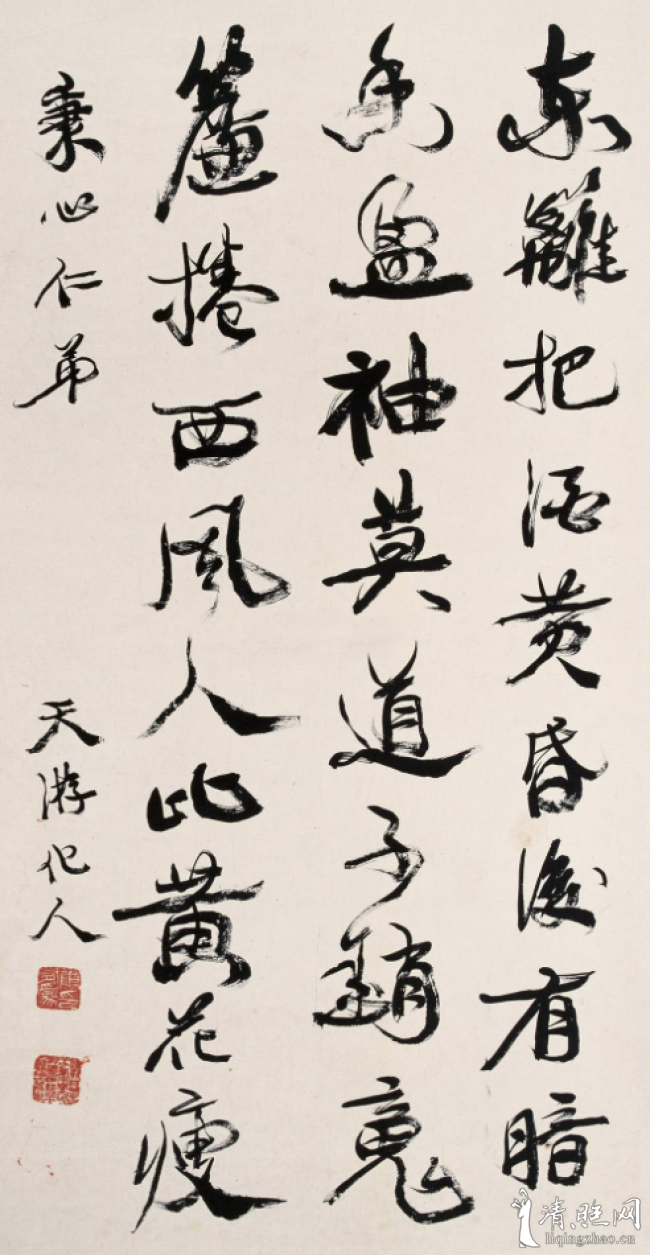 東籬把酒黄昏後有暗
香盈袖莫道不銷魂
簾捲西風人比黄花瘦
秉心仁弟
天游化人
liqingzhao.cn